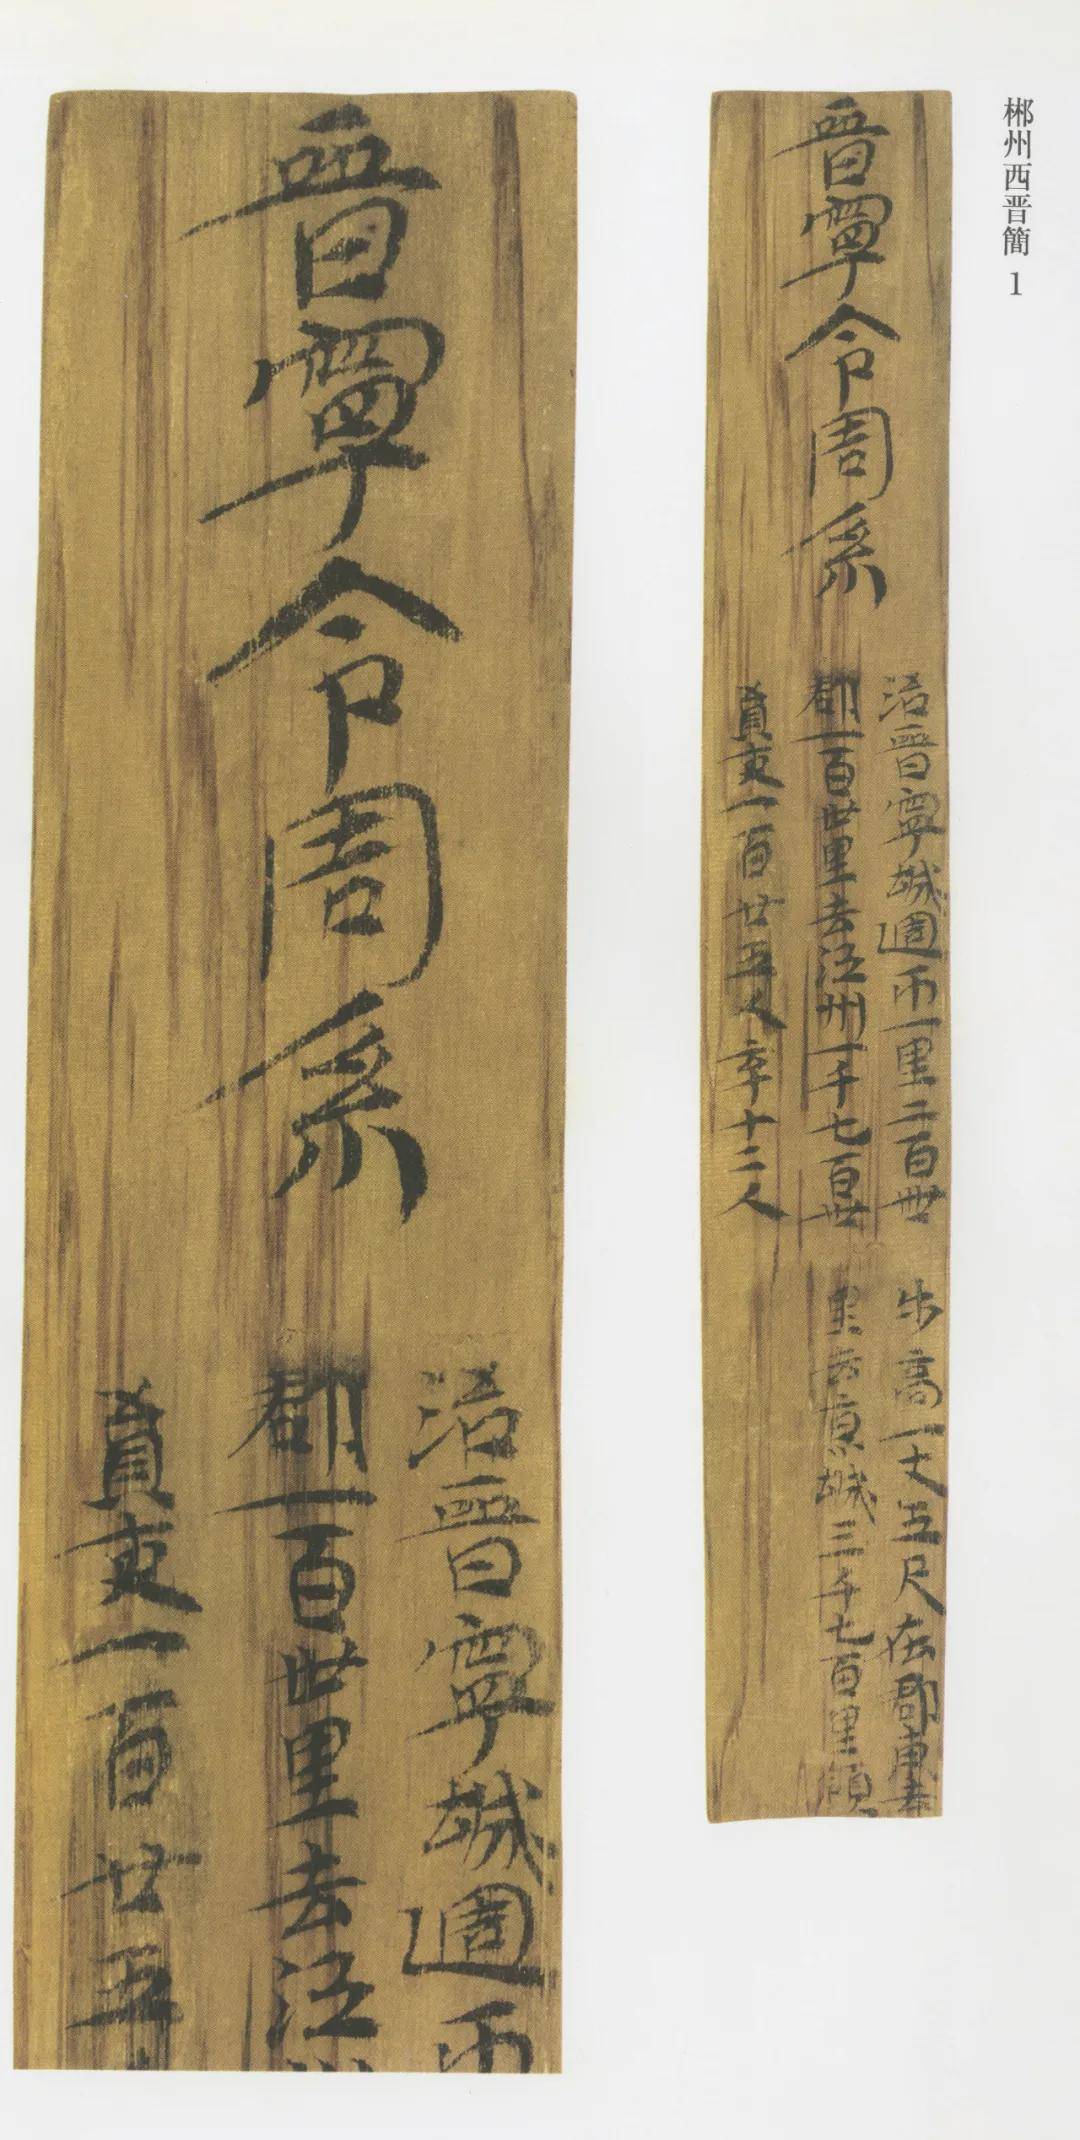 郴州西晋簡 1
晉寧令周系
治晉寧城週帀一里二百卌步高一丈五尺在郡東去
郡一百卅里去江州一千七百卅里去京城三千七百里領
員吏一百廿五人卒十二人
晉寧令周系
治晉寧城週帀
郡一百卅里去江
員吏一百廿五